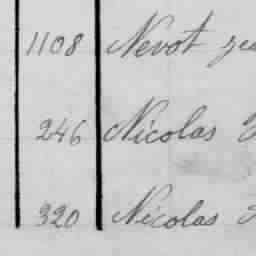 1108 Nevot
246 Nicolas
320 Nicolas